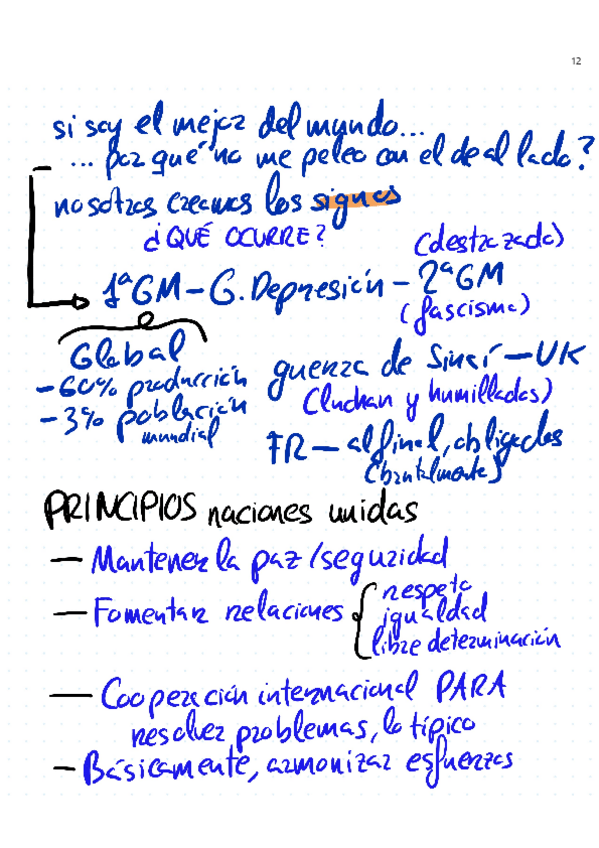 12
si soy el mejor del mundo...
... por qué no me peleo con el de al lado?
nosotros creamos los signos
¿QUÉ OCURRE?
(destrozado)
1ª GM – G. Depresión – 2ª GM
(fascismo)
Global
– 60% producción
– 3% población
mundial
guerra de Sinaí – UK
(luchan y humillados)
FR – al final, obligados
(brutalmente)
PRINCIPIOS naciones unidas
– Mantener la paz/seguridad
– Fomentar relaciones { respeto
igualdad
libre determinación
– Cooperación internacional PARA
resolver problemas, lo típico
– Básicamente, armonizar esfuerzos